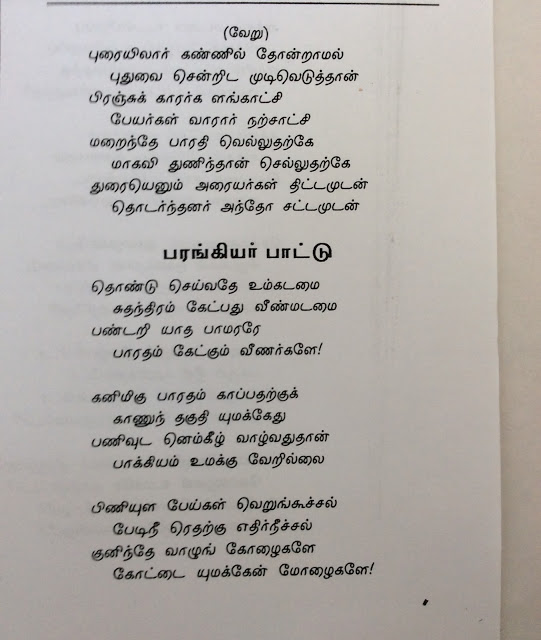 (வேறு)
புரையிலார் கண்ணில் தோன்றாமல்
புதுவை சென்றிட முடிவெடுத்தான்
பிரஞ்சுக் காரர்க ளங்காட்சி
பேயர்கள் வாரார் நற்சாட்சி
மறைந்தே பாரதி வெல்லுதற்கே
மாகவி துணிந்தான் செல்லுதற்கே
துரையெனும் அரையர்கள் திட்டமுடன்
தொடர்ந்தனர் அந்தோ சட்டமுடன்
பரங்கியர் பாட்டு
தொண்டு செய்வதே உம்கடமை
சுதந்திரம் கேட்பது வீண்மடமை
பண்டறி யாத பாமரரே
பாரதம் கேட்கும் வீணர்களே!
கனிமிகு பாரதம் காப்பதற்குக்
காணுந் தகுதி யுமக்கேது
பணிவுட னெம்கீழ் வாழ்வதுதான்
பாக்கியம் உமக்கு வேறில்லை
பிணியுள பேய்கள் வெறுங்கூச்சல்
பேடிநீ ரெதற்கு எதிர்நீச்சல்
குனிந்தே வாழுங் கோழைகளே
கோட்டை யுமக்கேன் மோழைகளே!